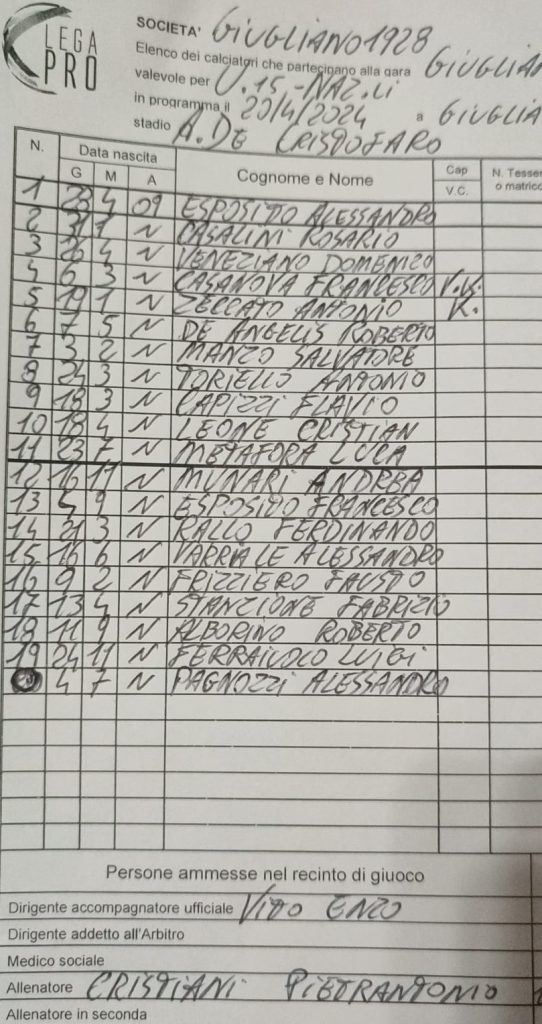 LEGA
PRO
SOCIETA' GIUGLIANO 1928
Elenco dei calciatori che partecipano alla gara GIUGLIAN
valevole per U.15 - NAZ.LI
in programma il 20/4/2024 a GIUGLIA
stadio A. DE CRISTOFARO
N. Data nascita Cognome e Nome Cap N. Tesse
G M A V.C. o matric
1 23 4 09 ESPOSITO ALESSANDRO
2 31 1 N CASALINI ROSARIO
3 26 4 N VENEZIANO DOMENICO
4 6 3 N CASANOVA FRANCESCO V.K.
5 19 1 N ZECCATO ANTONIO K.
6 7 5 N DE ANGELIS ROBERTO
7 3 2 N MANZO SALVATORE
8 24 3 N TORIELLO ANTONIO
9 18 3 N CAPIZZI FLAVIO
10 18 4 N LEONE CRISTIAN
11 23 7 N METAFORA LUCA
12 16 11 N MUNARI ANDREA
13 5 9 N ESPOSITO FRANCESCO
14 21 3 N RALLO FERDINANDO
15 16 6 N VARRIALE ALESSANDRO
16 9 2 N FRIZZIERO FAUSTO
17 13 4 N STANZIONE FABRIZIO
18 11 9 N ALBORINO ROBERTO
19 24 11 N FERRAIUOLO LUIGI
20 4 7 N PAGNOZZI ALESSANDRO
Persone ammesse nel recinto di giuoco
Dirigente accompagnatore ufficiale VITO ENZO
Dirigente addetto all'Arbitro
Medico sociale
Allenatore CRISTIANI PIETRANTONIO
Allenatore in seconda